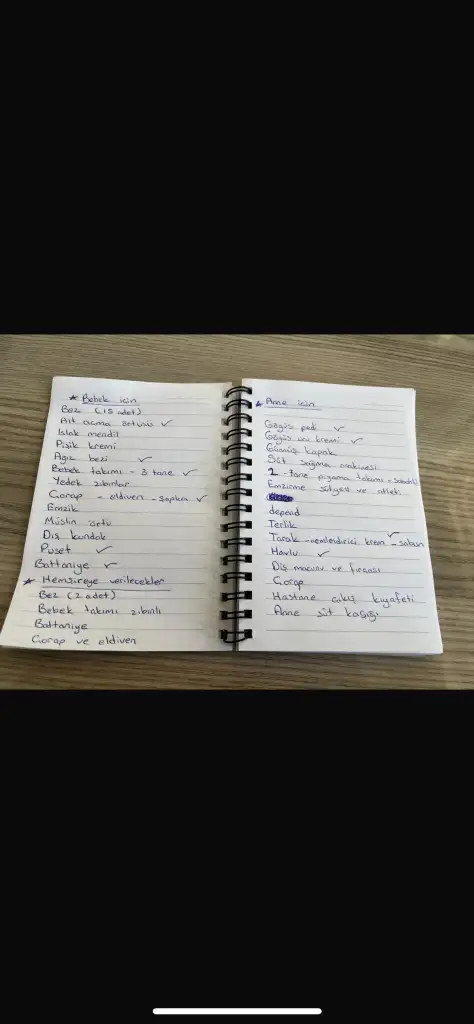 * Bebek için
Bez (15 adet)
Alt açma örtüsü ✓
Islak mendil
Pişik kremi
Ağız bezi ✓
Bebek takımı - 3 tane ✓
Yedek zıbınlar
Çorap - eldiven - şapka ✓
Emzik
Müslin örtü
Dış kundak
Puset ✓
Battaniye ✓
* Hemşireye verilecekler
Bez (2 adet)
Bebek takımı zıbınlı
Battaniye
Çorap ve eldiven
* Anne için
Göğüs pedi ✓
Göğüs ucu kremi ✓
Gümüş kapak
Süt sağma makinesi
2 - tane pijama takımı -
Emzirme sütyeni ve atleti
depend
Terlik
Tarak - nemlendirici krem ✓ - sabun
Havlu ✓
Diş macunu ve fırçası
Çorap
Hastane çıkış kıyafeti
Anne süt kaşığı